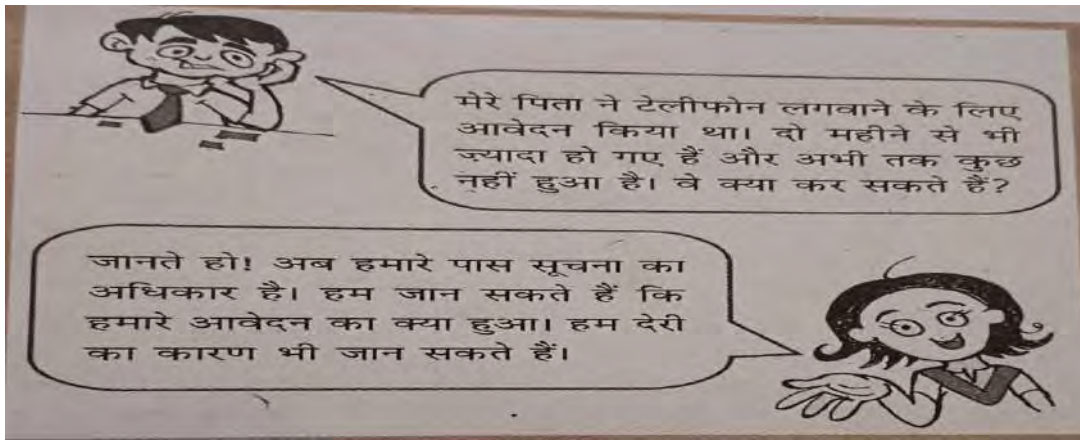 मेरे पिता ने टेलीफोन लगवाने के लिए
आवेदन किया था। दो महीने से भी
ज़्यादा हो गए हैं और अभी तक कुछ
नहीं हुआ है। वे क्या कर सकते हैं?
जानते हो! अब हमारे पास सूचना का
अधिकार है। हम जान सकते हैं कि
हमारे आवेदन का क्या हुआ। हम देरी
का कारण भी जान सकते हैं।